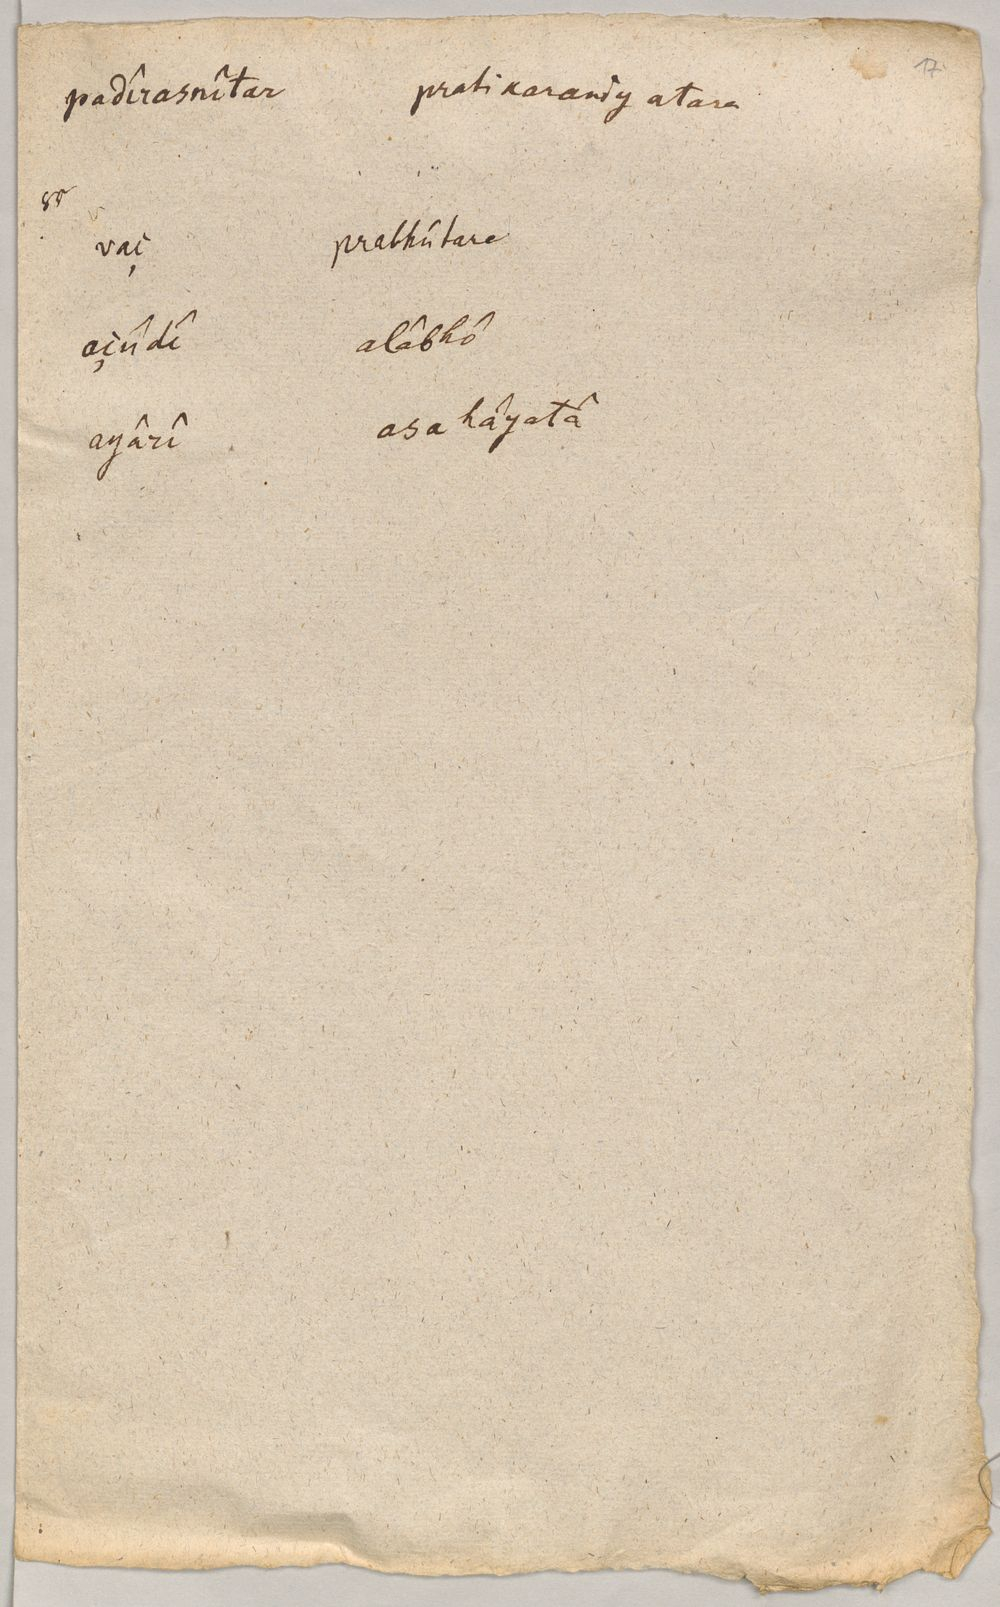 17
padîrasnîtar pratikaranîyatara
vaç prabhûtara
açûdî alâbhô
ayârî asahâyatâ